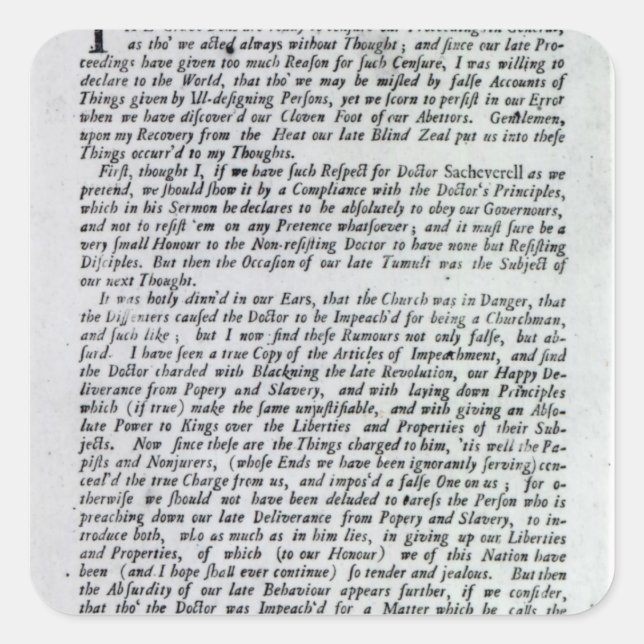 as tho' we acted always without Thought; and ſince our late Pro-
ceedings have given too much Reaſon for ſuch Cenſure, I was willing to
declare to the World, that tho' we may be miſled by falſe Accounts of
Things given by Ill-deſigning Perſons, yet we ſcorn to perſiſt in our Error
when we have diſcover'd our Cloven Foot of our Abettors. Gentlemen,
upon my Recovery from the Heat our late Blind Zeal put us into theſe
Things occurr'd to my Thoughts.
Firſt, thought I, if we have ſuch Reſpect for Doctor Sacheverell as we
pretend, we ſhould ſhow it by a Compliance with the Doctor's Principles,
which in his Sermon he declares to be abſolutely to obey our Governours,
and not to reſiſt 'em on any Pretence whatſoever; and it muſt ſure be a
very ſmall Honour to the Non-reſiſting Doctor to have none but Reſiſting
Diſciples. But then the Occaſion of our late Tumult was the Subject of
our next Thought.
It was hotly dinn'd in our Ears, that the Church was in Danger, that
the Diſſenters cauſed the Doctor to be Impeach'd for being a Churchman,
and ſuch like; but I now find theſe Rumours not only falſe, but ab-
ſurd. I have ſeen a true Copy of the Articles of Impeachment, and find
the Doctor charded with Blackning the late Revolution, our Happy De-
liverance from Popery and Slavery, and with laying down Principles
which (if true) make the ſame unjuſtifiable, and with giving an Abſo-
lute Power to Kings over the Liberties and Properties of their Sub-
jects. Now ſince theſe are the Things charged to him, 'tis well the Pa-
piſts and Nonjurers, (whoſe Ends we have been ignorantly ſerving) con-
ceal'd the true Charge from us, and impos'd a falſe One on us; for o-
therwiſe we ſhould not have been deluded to careſs the Perſon who is
preaching down our late Deliverance from Popery and Slavery, to in-
troduce both, who as much as in him lies, in giving up our Liberties
and Properties, of which (to our Honour) we of this Nation have
been (and I hope ſhall ever continue) ſo tender and jealous. But then
the Abſurdity of our late Behaviour appears further, if we conſider,
that tho' the Doctor was Impeach'd for a Matter which he calls the